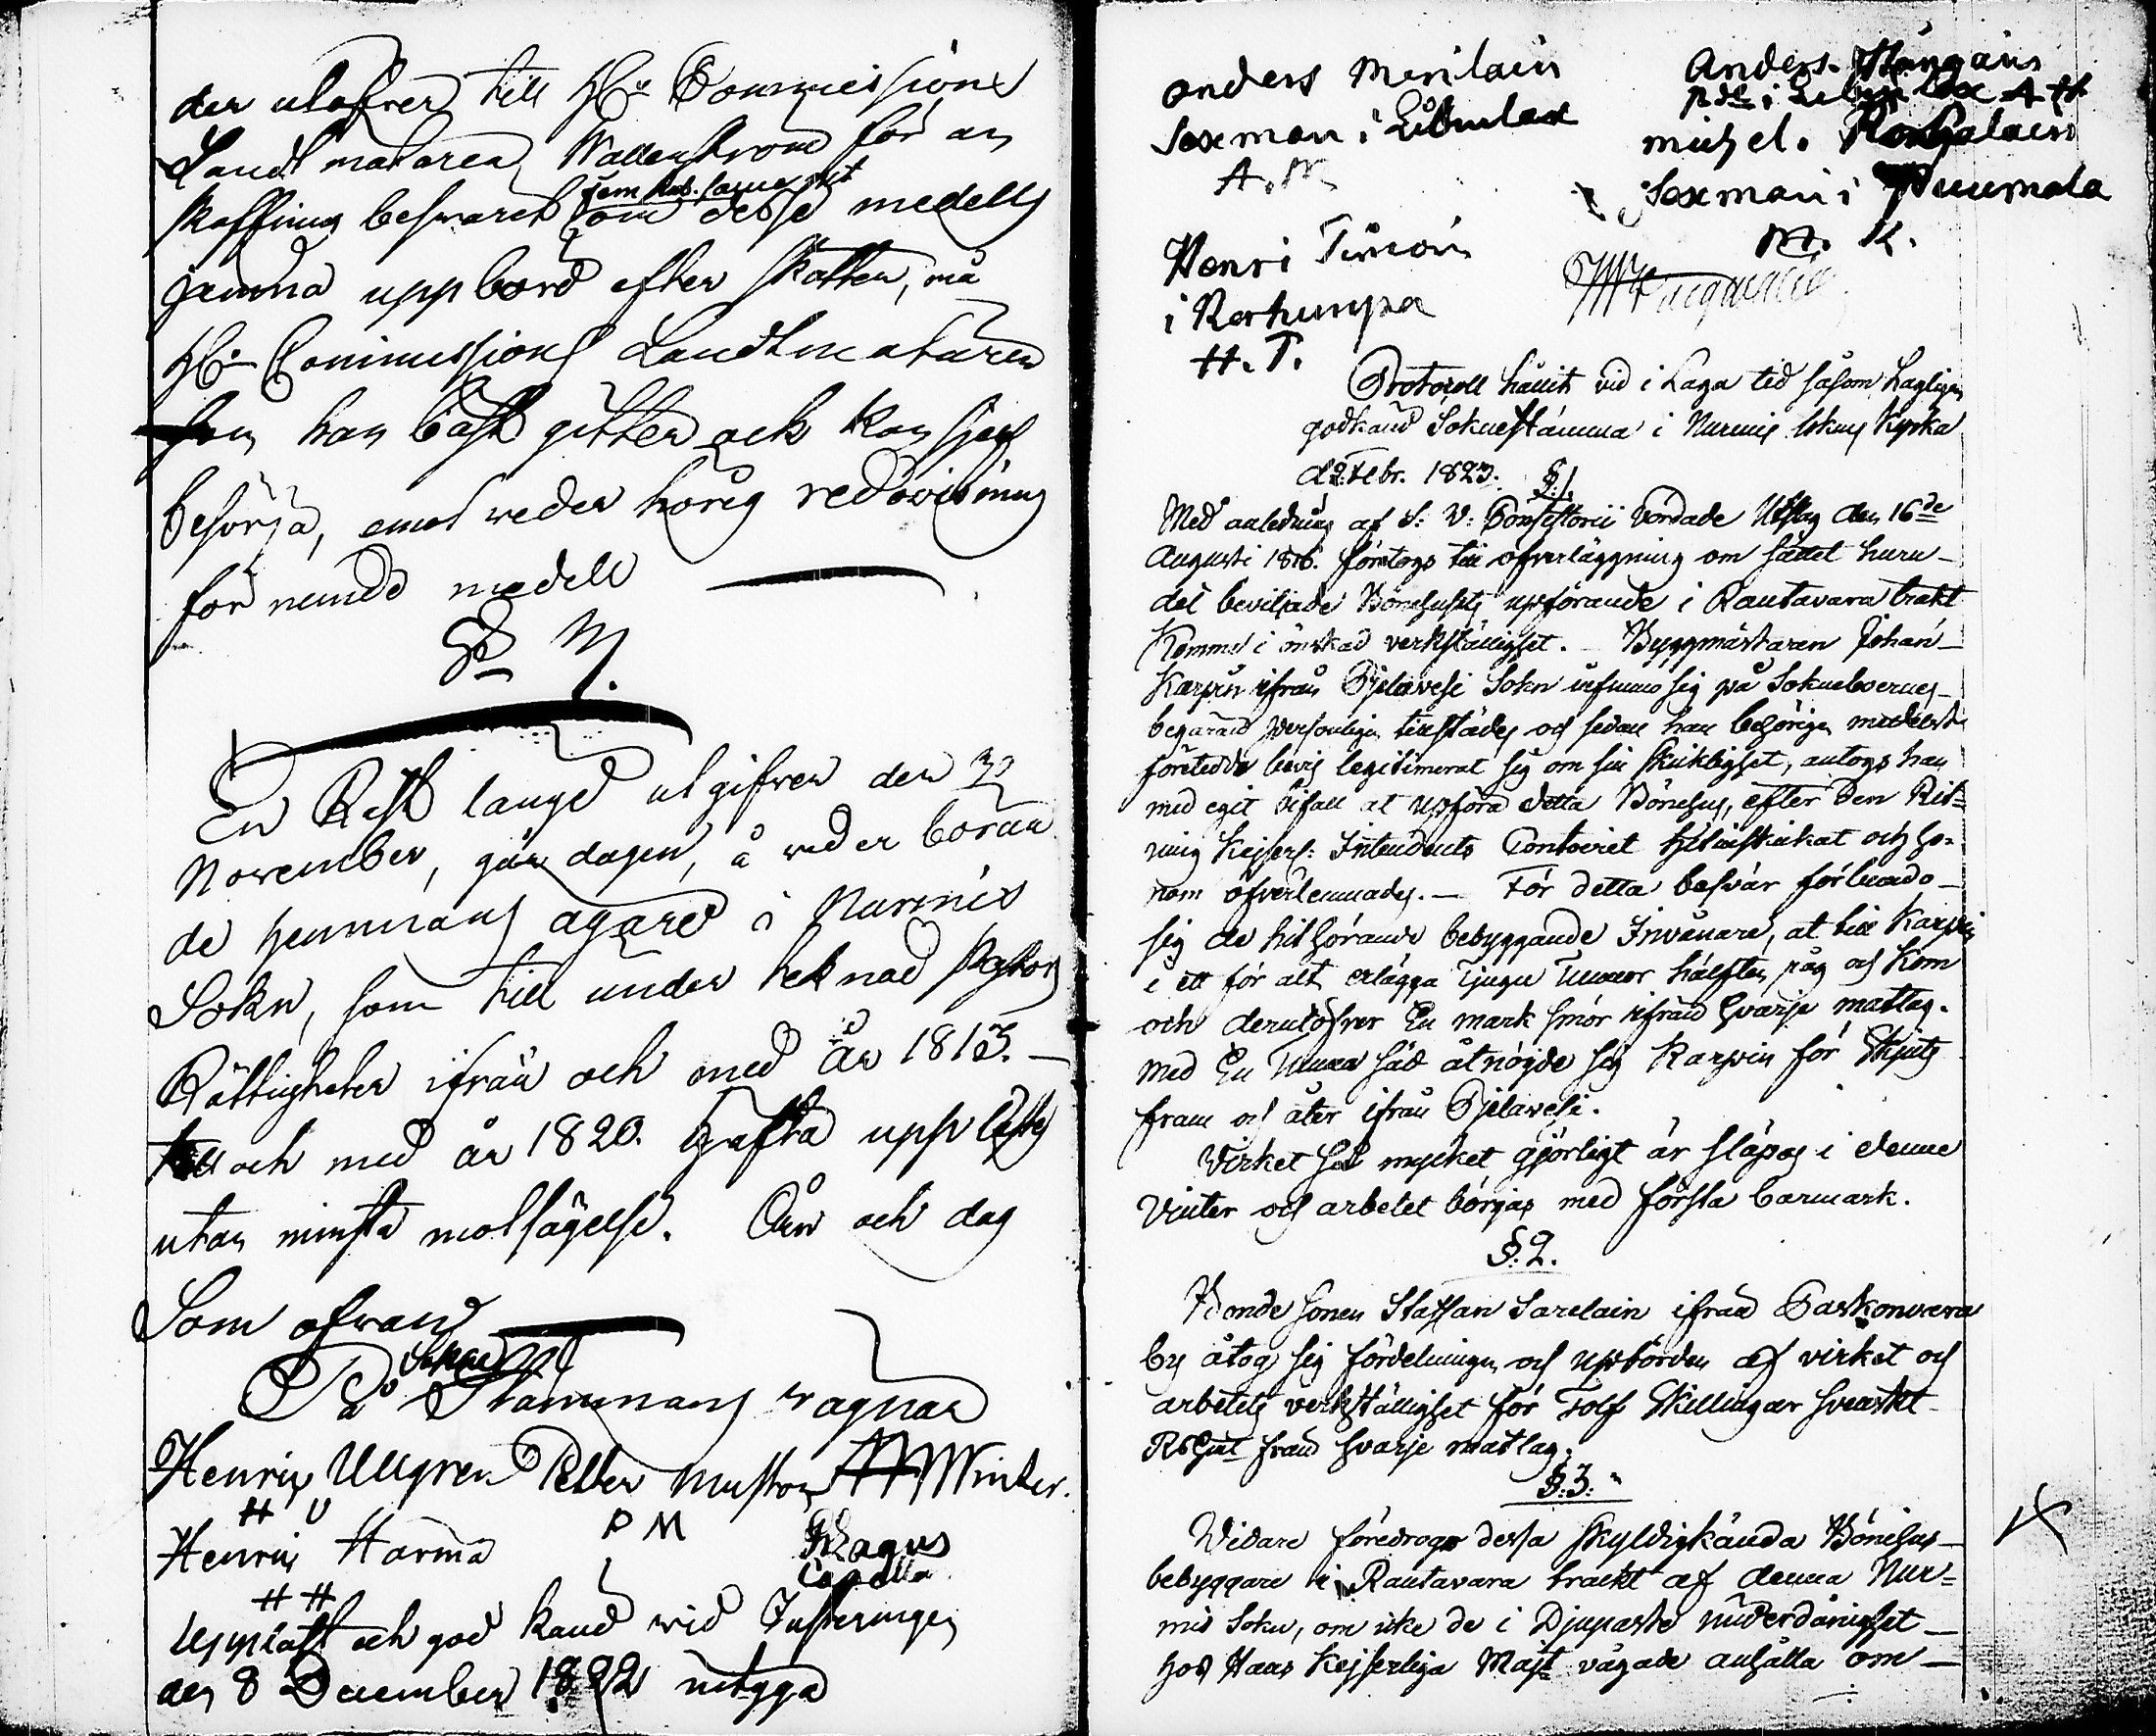 der utöfver till Hr Commissions
Landtmätaren Wallenstrom för an
skaffning besväret som desse medells
jemna uppbord efter skatten, må
Hr Commissions Landtmätaren
som han bäst gitter och kan sjelf
besörja, emot weder hörig redovisning
för nemde medell
§ M.
En Rest längd utgifven den 30
November, går dagen, å weder böran
de hemmans ägare i Nurmis
Sokn, som till under teknad Pastors
Rättigheter ifrån och med år 1813.
till och med år 1820. Häfta upplästes
utan minsta motsägelse. Åhr och dag
Som ofvan
På Sokne Stämmans vägnar
Henrix Ullgren Petter Muston Winter.
H U P M
Henrix Harma
H H
Uppläst och god känd wid Justeringen
den 8 December 1822 intyga
anders Merilain
Sexman i
A. M
Anders
michel.
Sexman i Puumala
M. K.
Henri Timoin
i Karhunpä
H. T.
Protocoll hållit vid i Laga tid såsom Lagligen
godkänd Soknestämma i Nurmis Sokns Kyrka
d 2 Febr. 1823. §.1.
Med anledning af S: V: Consistorii Vördade Utslag den 16de
Augusti 1816. företogs till öfverläggning om sättet huru
det beviljade Bönehusets upförande i Rautavara trakt
Komme i önskad verkställighet. Byggmästaren Johan
Karpin ifrån Pjelavesi Sokn infunno sig på Sokneboernes
begäran personligen tillstädes och sedan han behörigen medelst
företedde bevis legitimerat sig om sin skicklighet, antogs han
med egit bifall at upföra detta Bönehus, efter den Rit=
ning Kejserl: Intendents Contoiret hitinskickat och ho=
nom öfverlemnades. — För detta besvär förbundo
sig de hithörande bebyggande Invånare, at till Karpin
i ett för alt erlägga Tjugu Tunnor hälften råg och Korn
och derutöfver En mark smör ifrån hvarje matlag.
med En Tunna säd åtnöjde sig Karpin för Skjuts
fram och åter ifrån Pjelavesi.
Virket så mycket görligt är släpas i denne
Vinter och arbetet börjas med första barmark.
§.2.
Bonde sonen Staffan Sarelain ifrån Paskonvara
by åtog sig fördelningen och upbörden af virket och
arbetets verkställighet för Tolf Skillingar Svenskt
Rsgält från hvarje matlag.
§.3.
Widare föredrogs dessa skyldigkända Bönehus
bebyggare i Rautavara trackt af denna Nur=
mis Sokn, om icke de i Djupaste underdånighet
hos Hans Kejserliga Majt vågade anhålla om